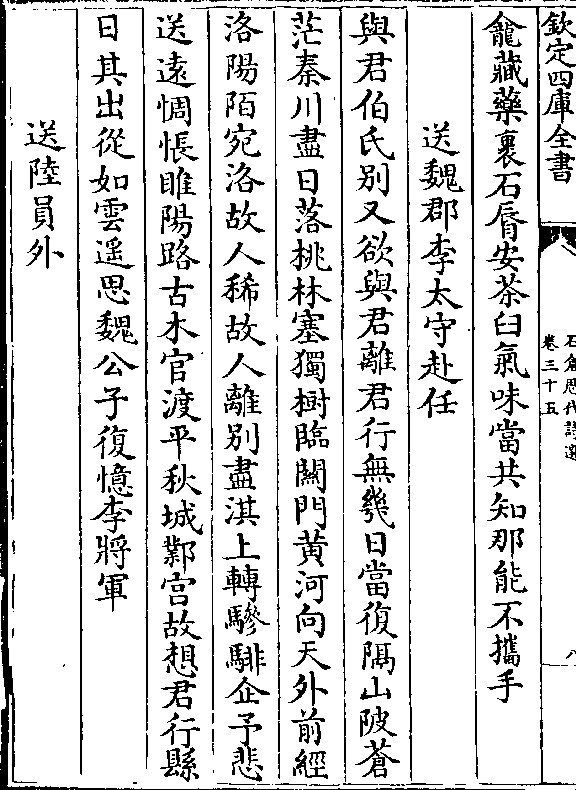 欽定四庫全書
石倉歷代詩選
卷三十五
八
龕藏藥裹石脣安茶臼氣味當共知那能不攜手
送魏郡李太守赴任
與君伯氏别又欲與君離君行無幾日當復隔山陂蒼
茫秦川盡日落桃林塞獨樹臨關門黄河向天外前經
洛陽陌宛洛故人稀故人離别盡淇上轉驂騑企予悲
送遠惆悵睢陽路古木官渡平秋城鄴宫故想君行縣
日其出從如雲遥思魏公子復憶李將軍
送陸員外